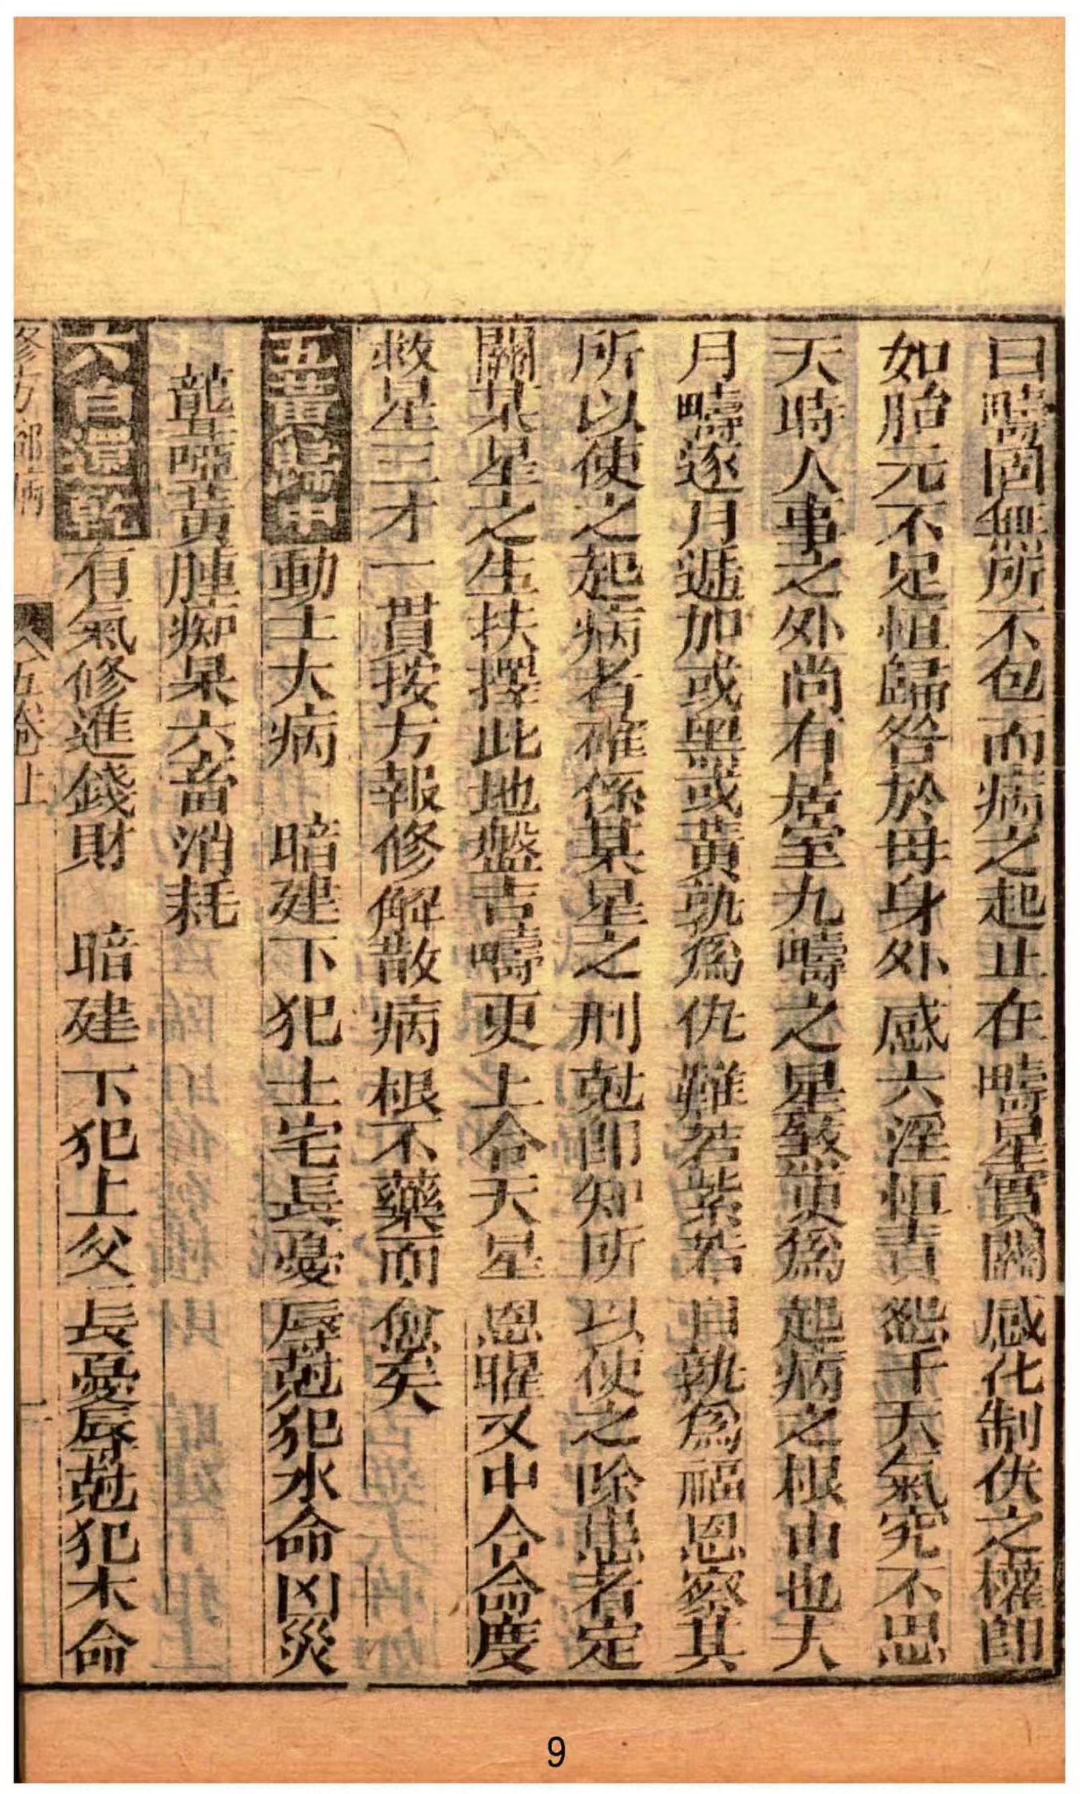 曰疇固無所不包而病之起止在疇星實關感化制伏之權即
如胎元不足恒歸咎於母身外感六淫恒責怨于天氣究不思
天時人事之外尚有居室九疇之星發更為起病之根由也大
月疇逐月遞加或黑或黃孰為仇難若紫若白孰為福恩察其
所以使之起病者確係某星之刑剋即知所以使之除患者定
關某星之生扶擇此地盤吉疇更上合天星恩曜又中合命度
救星三才一貫按方報修解散病根不藥而愈矣
五黃臨中 動土大病 暗建下犯土宅長憂辱剋犯水命凶災
聾啞黃腫痴呆六畜消耗
六白還乾 有氣修進錢財 暗建下犯上父長憂辱剋犯木命
修方卻病 五卷上
9